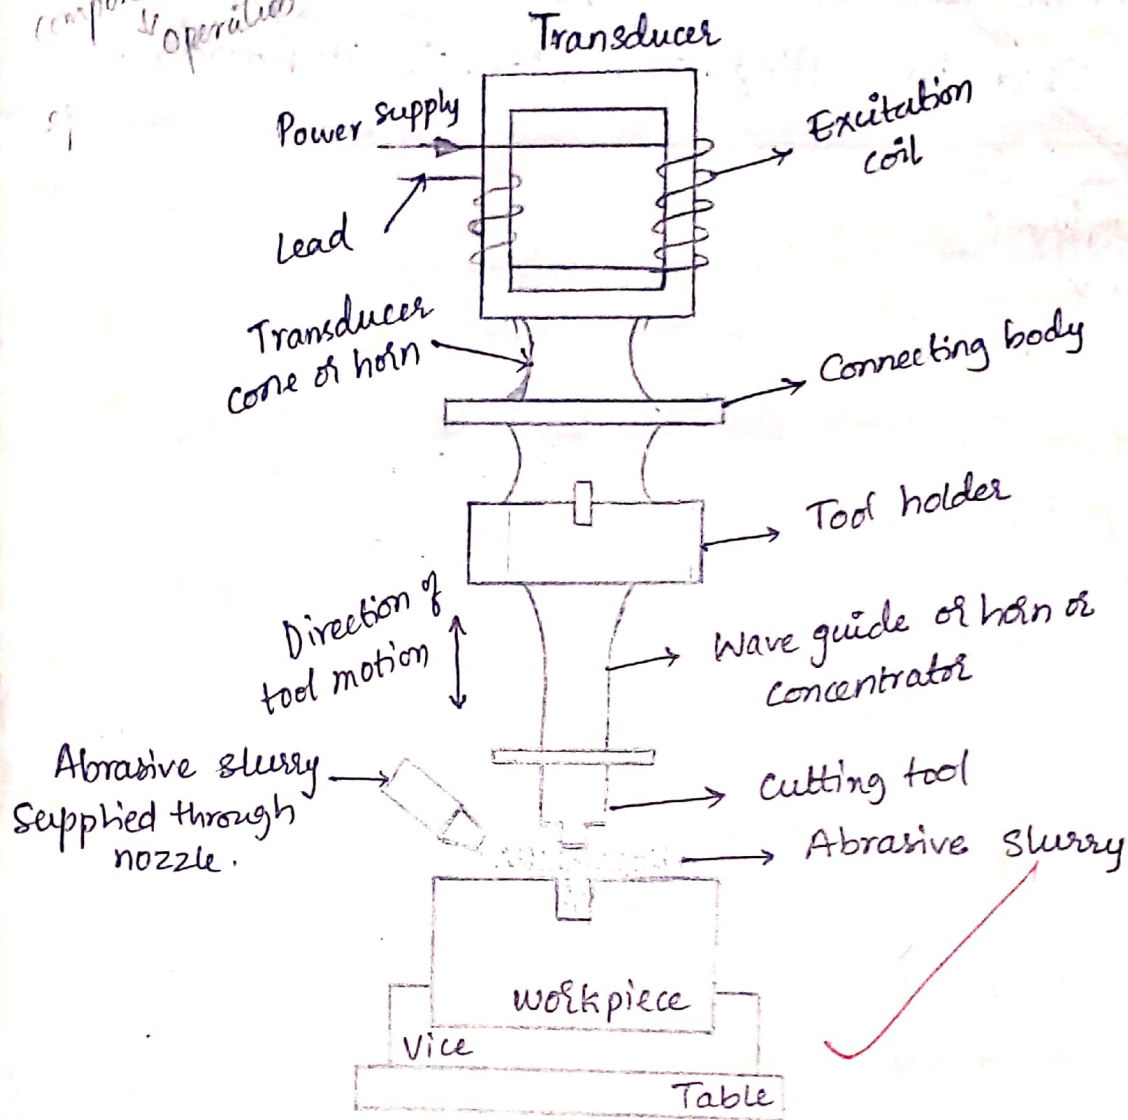 operation
Transducer
Power supply
Excitation
coil
Lead
Transducer
cone or horn
Connecting body
Tool holder
Direction of
tool motion
Wave guide or horn or
concentrator
Abrasive slurry
Supplied through
nozzle.
Cutting tool
Abrasive slurry
workpiece
Vice
Table